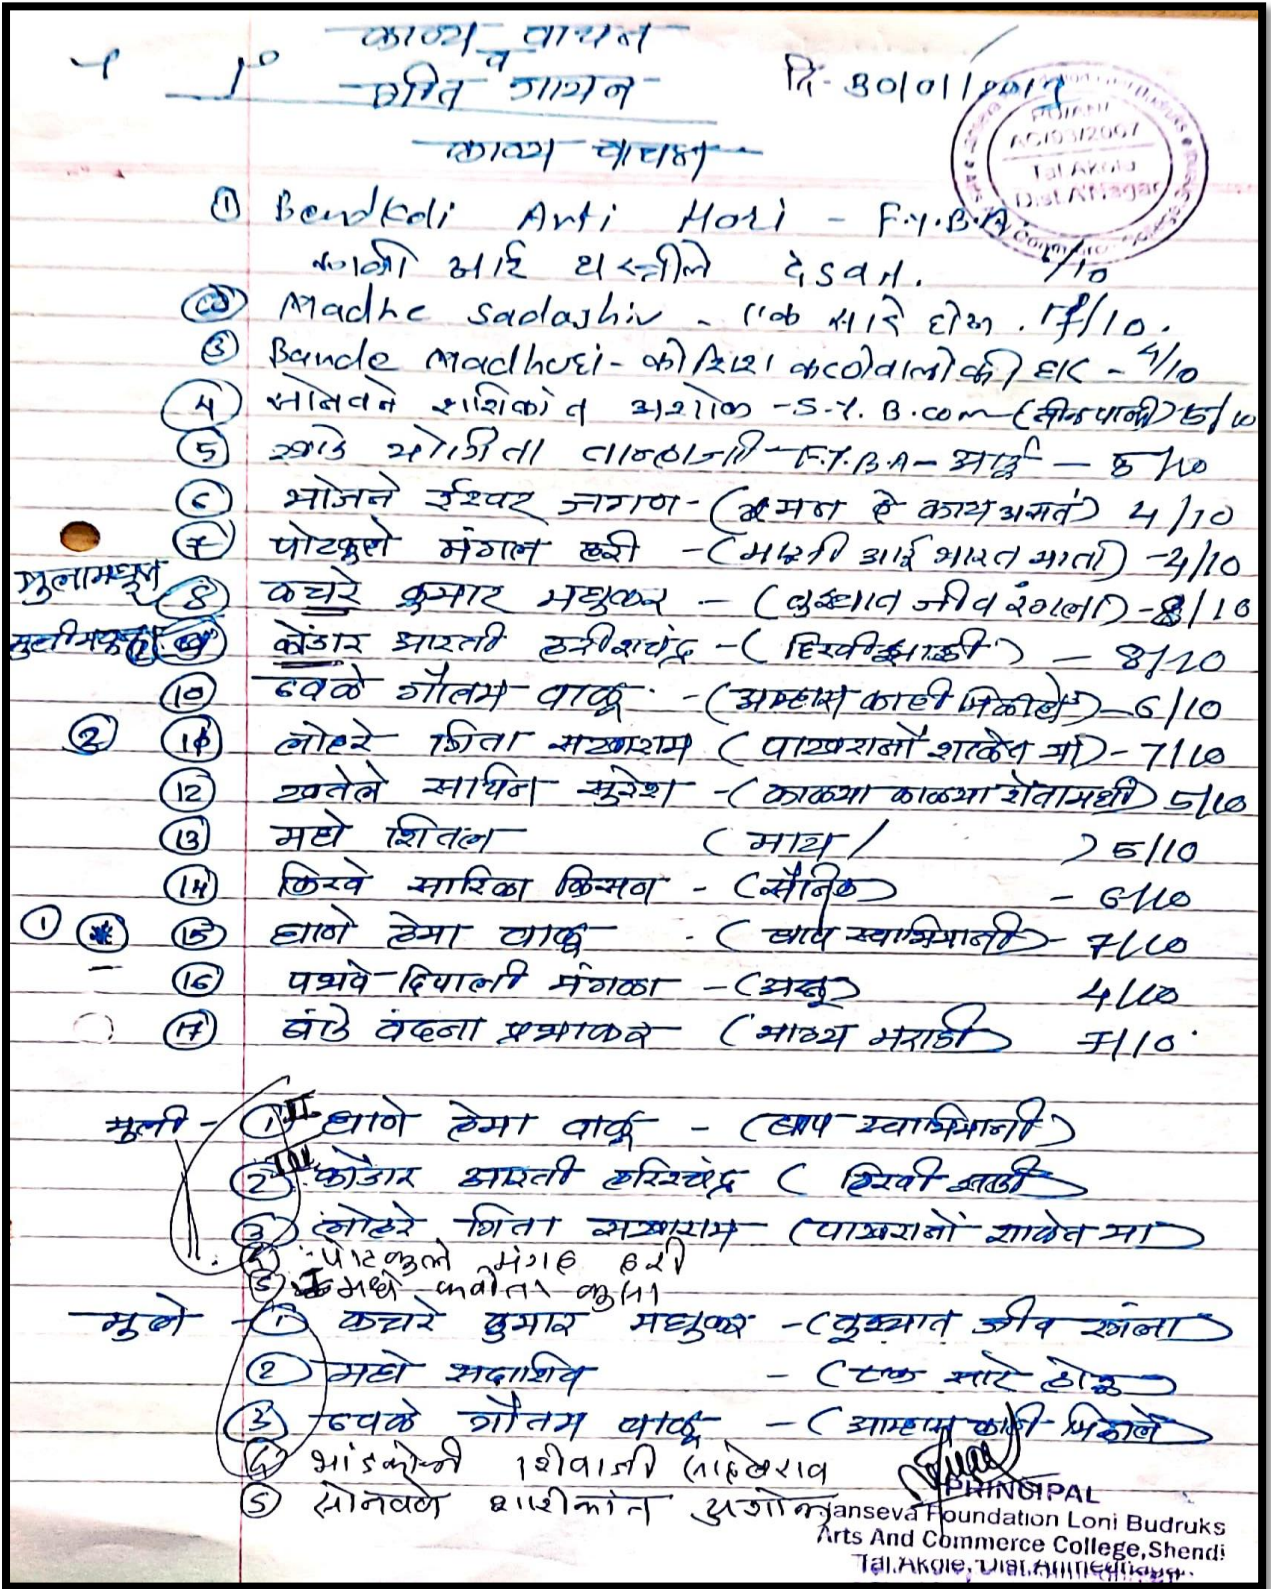 काव्य वाचन
व
गीत गायन
दि- 30/01/2017
काव्य वाचन
PUNE
AC/03/2007
Tal.Akole
Dist.A'Nagar
① Bendkoli Arti Hari - F.Y.B.A.
आई 5/10
② Madhe Sadashiv - 7/10.
③ Bande Madhuri - कोशिश करणेवालो की हार - 4/10
④ सोनवने शशिकांत अशोक - S.Y.B.com - 5/10
⑤ खाडे योगिता तान्हाजी - F.Y.B.A - आई - 5/10
⑥ भोजने ईश्वर जगण - (मन हे काय असतं) 4/10
⑦ पोटकुले मंगल हरी - (माझी आई भारत माता) - 4/10
मुलामधून ⑧ कचरे कुमार मधुकर - (तुझ्यात जीव रंगला) - 8/10
⑨ कोंडार आरती हरीशचंद्र - (हिरवी झाडी) - 8/10
⑩ ढवळे गौतम वाळू - (आम्हास काही शिकीले) - 6/10
② ⑪ लोहरे गिता सखाराम (पाखरानों शाळेत या) - 7/10
⑫ खतेले सचिन सुरेश - (काळ्या काळ्या शेतामधी) 5/10
⑬ मधे शितल (माय) 5/10
⑭ किरवे सारिका किसन - (सैनिक) - 6/10
① ⑮ घाणे हेमा वाळू - (बाप स्वाभिमानी) - 7/10
⑯ पथवे दिपाली मंगळा - 4/10
⑰ बांडे वंदना प्रभाकर (भाग्य मराठी) 7/10
मुली - ① II घाणे हेमा वाळू - (बाप स्वाभिमानी)
② III कोंडार आरती हरिश्चंद्र (हिरवी झाडी)
③ लोहरे गिता सखाराम (पाखरानों शाळेत या)
④ पोटकुले मंगल हरी
⑤ I मधे
मुले - ① कचरे कुमार मधुकर - (तुझ्यात जीव रंगला)
② मधे सदाशिव
③ ढवळे गौतम वाळू - (आम्हास काही शिकीले)
④ भांडकोळी शिवाजी साहेबराव
⑤ सोनवणे शशीकांत अशोक
PRINCIPAL
Janseva Foundation Loni Budruks
Arts And Commerce College,Shendi
Tal.Akole, Dist.Ahmednagar.